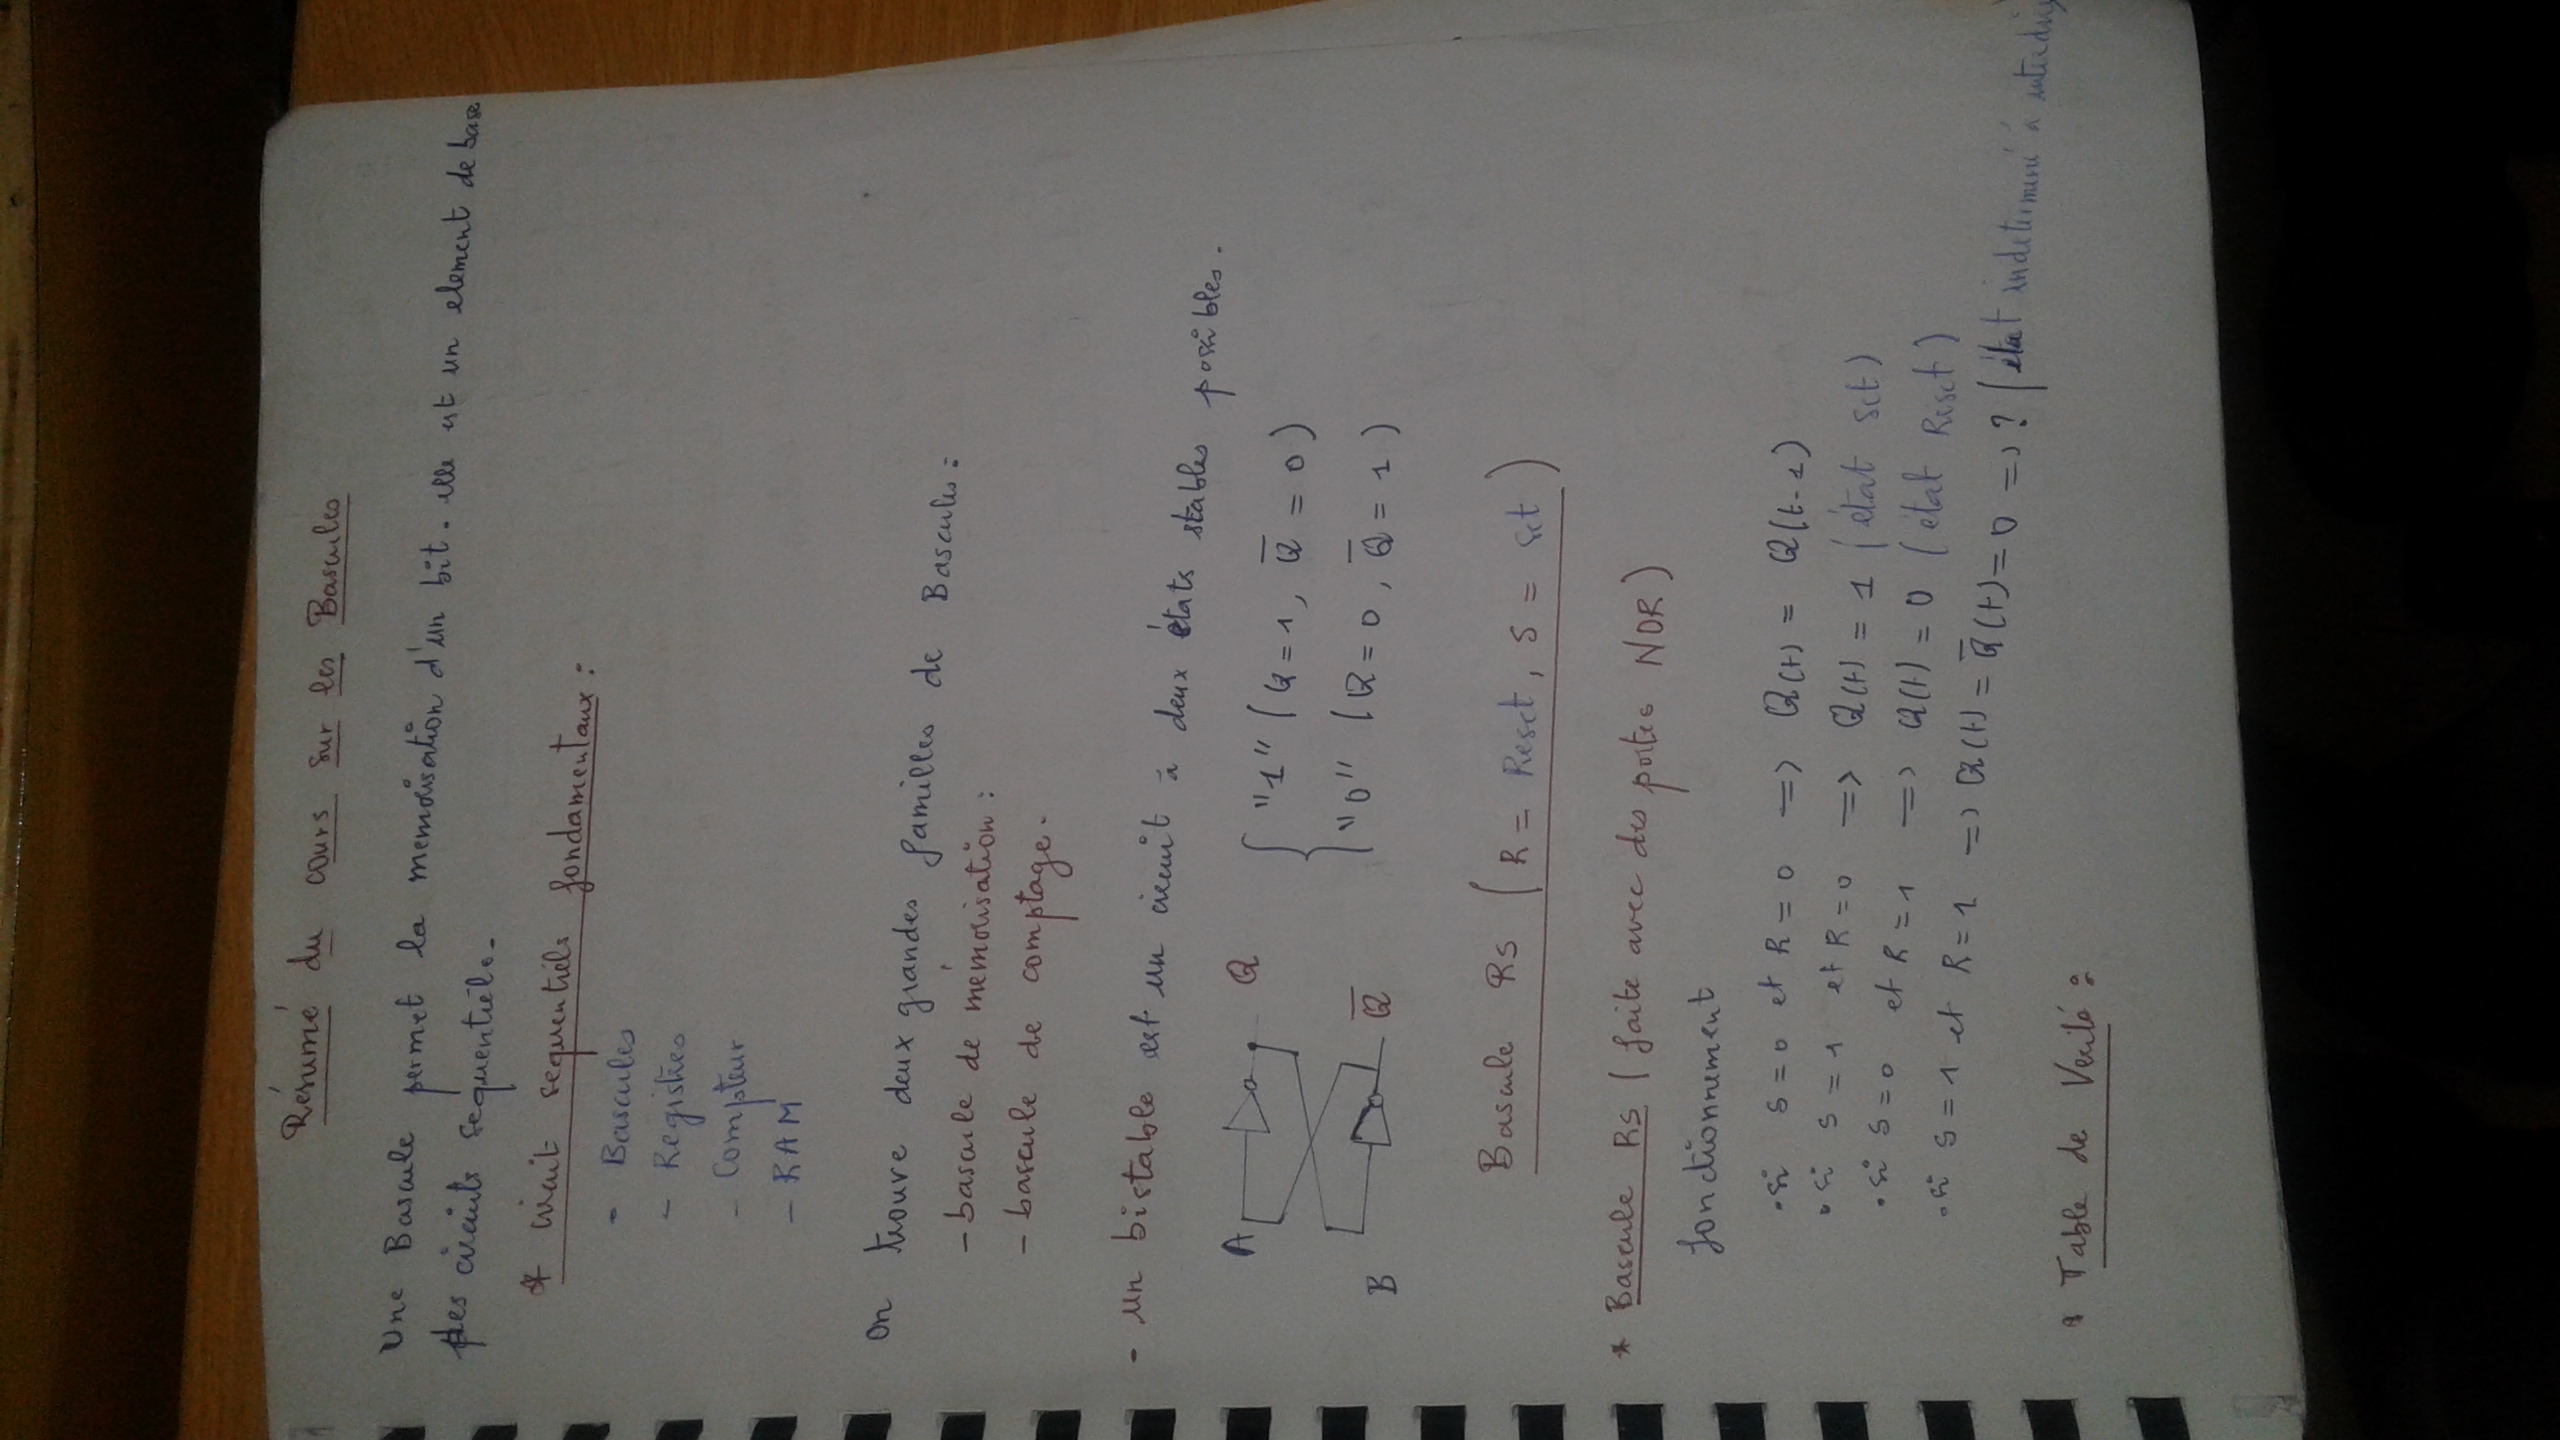 Résumé du cours sur les Bascules
Une Bascule permet la memorisation d'un bit. elle est un element de base
des circuits sequentiels.
* circuit sequentiels fondamentaux :
- Bascules
- Registres
- Compteur
- RAM
On trouve deux grandes familles de Bascules :
- bascule de mémorisation :
- bascule de comptage.
- un bistable est un circuit à deux états stables possibles.
A Q
"1" (Q = 1, Q̅ = 0)
"0" (Q = 0, Q̅ = 1)
B Q̅
Bascule RS (R = Reset, S = Set)
* Bascule RS (faite avec des portes NOR)
fonctionnement
. si S = 0 et R = 0 => Q(t) = Q(t-1)
. si S = 1 et R = 0 => Q(t) = 1 (état Set)
. si S = 0 et R = 1 => Q(t) = 0 (état Reset)
. si S = 1 et R = 1 => Q(t) = Q̅(t) = 0 => ? (état indeterminé à interdire
• Table de Verité :